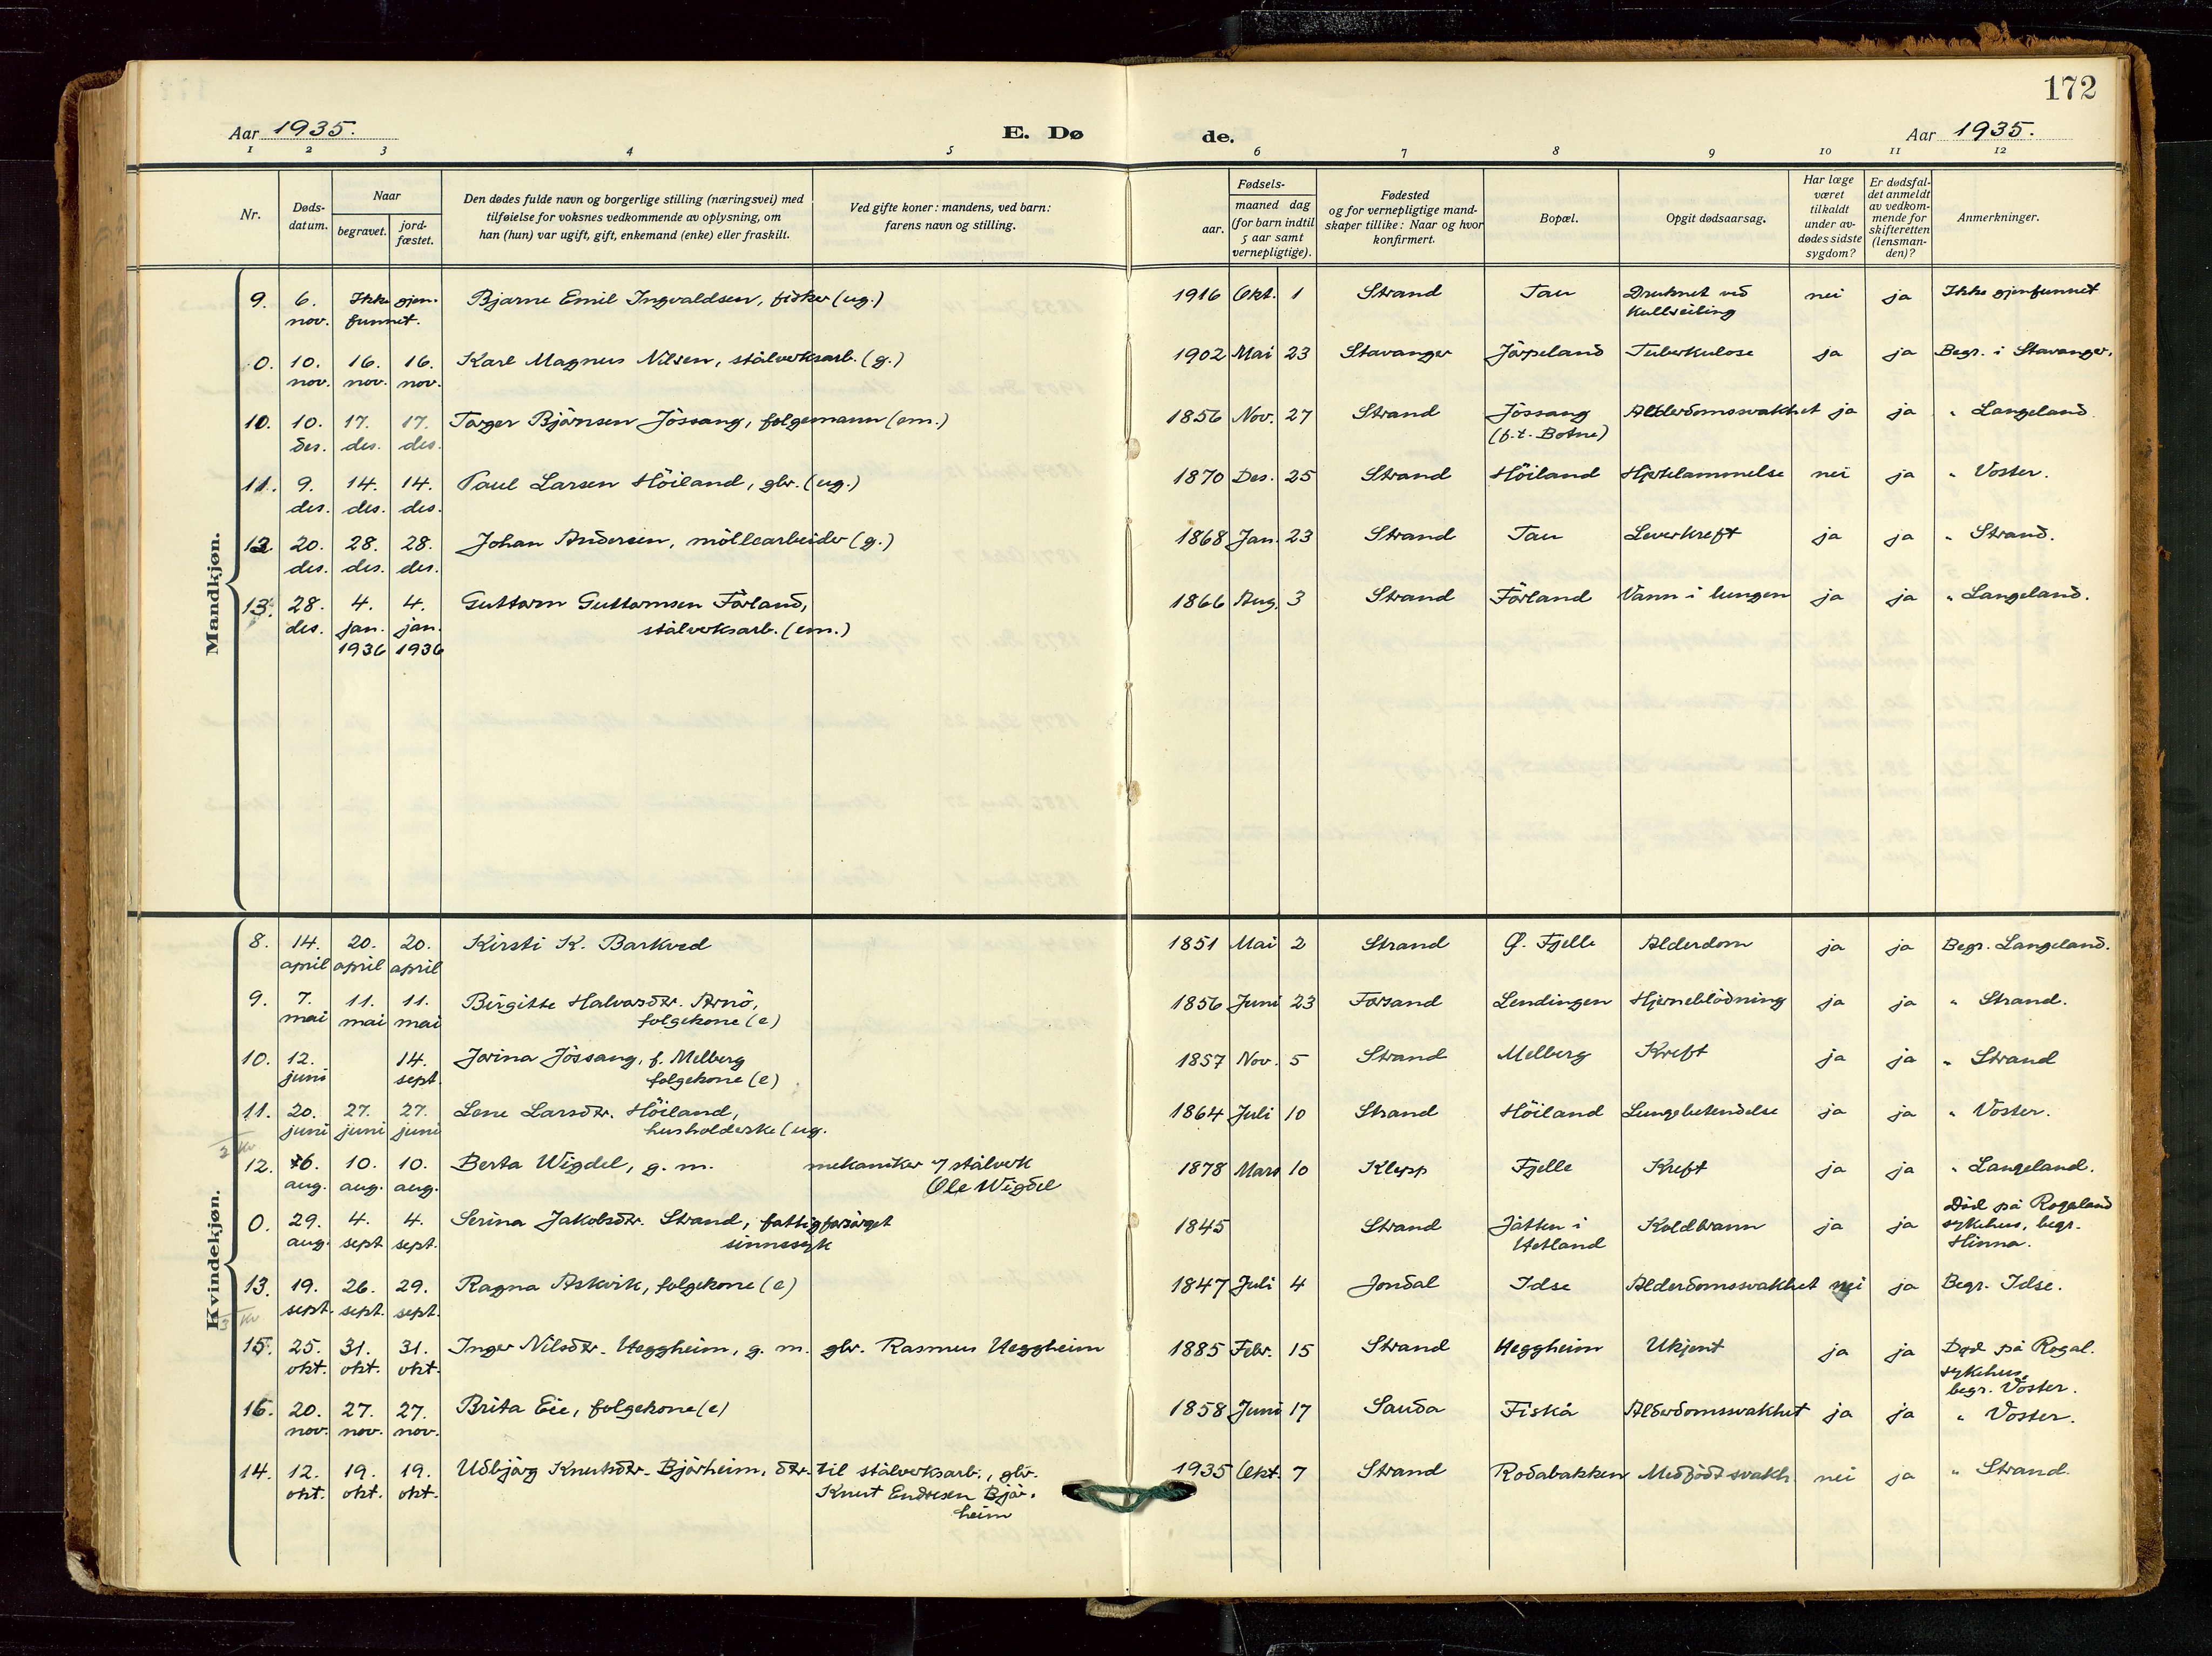 172
Aar 1935. E. Dø de. Aar 1935.
1 2 3 4 5 6 7 8 9 10 11 12
Nr. Døds-datum. Naar begravet. jord-fæstet. Den dødes fulde navn og borgerlige stilling (næringsvei) med tilføielse for voksnes vedkommende av oplysning, om han (hun) var ugift, gift, enkemand (enke) eller fraskilt. Ved gifte koner: mandens, ved barn: farens navn og stilling. Fødsels- aar. maaned dag (for barn indtil 5 aar samt vernepligtige). Fødested og for vernepligtige mand-skaper tillike: Naar og hvor konfirmert. Bopæl. Opgit dødsaarsag. Har læge været tilkaldt under av-dødes sidste sygdom? Er dødsfal-det anmeldt av vedkom-mende for skifteretten (lensman-den)? Anmerkninger.
Mandkjøn.
9. 6. nov. Ikke gjen-funnet. Bjarne Emil Ingvaldsen, fisker (ug.) 1916 Okt. 1 Strand Tau Druknet ved Kullseiling nei ja Ikke gjenfunnet
0. 10. nov. 16. nov. 16. nov. Karl Magnus Nilsen, stålverksarb. (g.) 1902 Mai 23 Stavanger Jörpeland Tuberkulose ja ja Begr. i Stavanger.
10. 10. des. 17. des. 17. des. Torger Björnsen Jössang, folgemann (em.) 1856 Nov. 27 Strand Jössang (f.t. Botne) Alderdomssvakhet ja ja " Langeland.
11. 9. des. 14. des. 14. des. Paul Larsen Höiland, gbr. (ug.) 1870 Des. 25 Strand Höiland Hjertelammelse nei ja " Voster.
12. 20. des. 28. des. 28. des. Johan Andersen, möllearbeider (g.) 1868 Jan. 23 Strand Tau Leverkreft ja ja " Strand.
13. 28. des. 4. jan. 1936 4. jan. 1936 Guttorm Guttormsen Förland, stålverksarb. (em.) 1866 Aug. 3 Strand Förland Vann i lungen ja ja " Langeland.
Kvindekjøn.
8. 14. april 20. april 20. april Kirsti K. Barkved 1851 Mai 2 Strand Ø. Fjelle Alderdom ja ja Begr. Langeland.
9. 7. mai 11. mai 11. mai Birgitte Halvorsdtr. Arnö, folgekone (e) 1856 Juni 23 Forsand Lendingen Hjerneblödning ja ja " Strand.
10. 12. juni 14. sept. Jorina Jössang, f. Melberg folgekone (e) 1857 Nov. 5 Strand Melberg Kreft ja ja " Strand
11. 20. juni 27. juni 27. juni Lene Larsdtr. Höiland, husholderske (ug. 1864 Juli 10 Strand Höiland Lungebetendelse ja ja " Voster.
12. 6. aug. 10. aug. 10. aug. Berta Wigdel, g. m. mekaniker v/ stålverk Ole Wigdel 1878 Mars 10 Klepp Fjelle Kreft ja ja " Langeland.
0. 29. aug. 4. sept 4. sept. Serina Jakobsdtr. Strand, fattigforsörget sinnssyk 1845 Strand Jåtten i Hetland Koldbrann ja ja Död på Rogaland sykehus, begr. Hinna.
13. 19. sept. 26. sept. 29. sept. Ragna Askvik, folgekone (e) 1847 Juli 4 Jondal Idse Alderdomssvakhet nei ja Begr. Idse.
15. 25. okt. 31. okt. 31. okt. Inger Nilsdtr. Heggheim, g. m. gbr. Rasmus Heggheim 1885 Febr. 15 Strand Heggheim Ukjent ja ja Död på Rogal. sykehus, begr. Voster.
16. 20. nov. 27. nov. 27. nov. Brita Eie, folgekone (e) 1858 Juni 17 Sauda Fiskå Alderdomssvakhet ja ja " Voster.
14. 12. okt. 19. okt. 19. okt. Udbjörg Knutsdtr. Bjørheim, dtr. til stålverksarb., gbr. Knut Endresen Bjør-heim 1935 Okt. 7 Strand Rodabakken Medfödt svakh. nei ja " Strand.